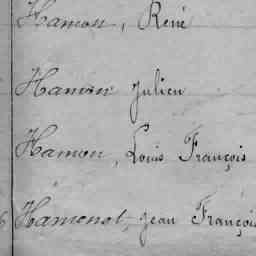 Hamon, René
Hamon Julien
Hamon, Louis François
Hamonot, Jean François